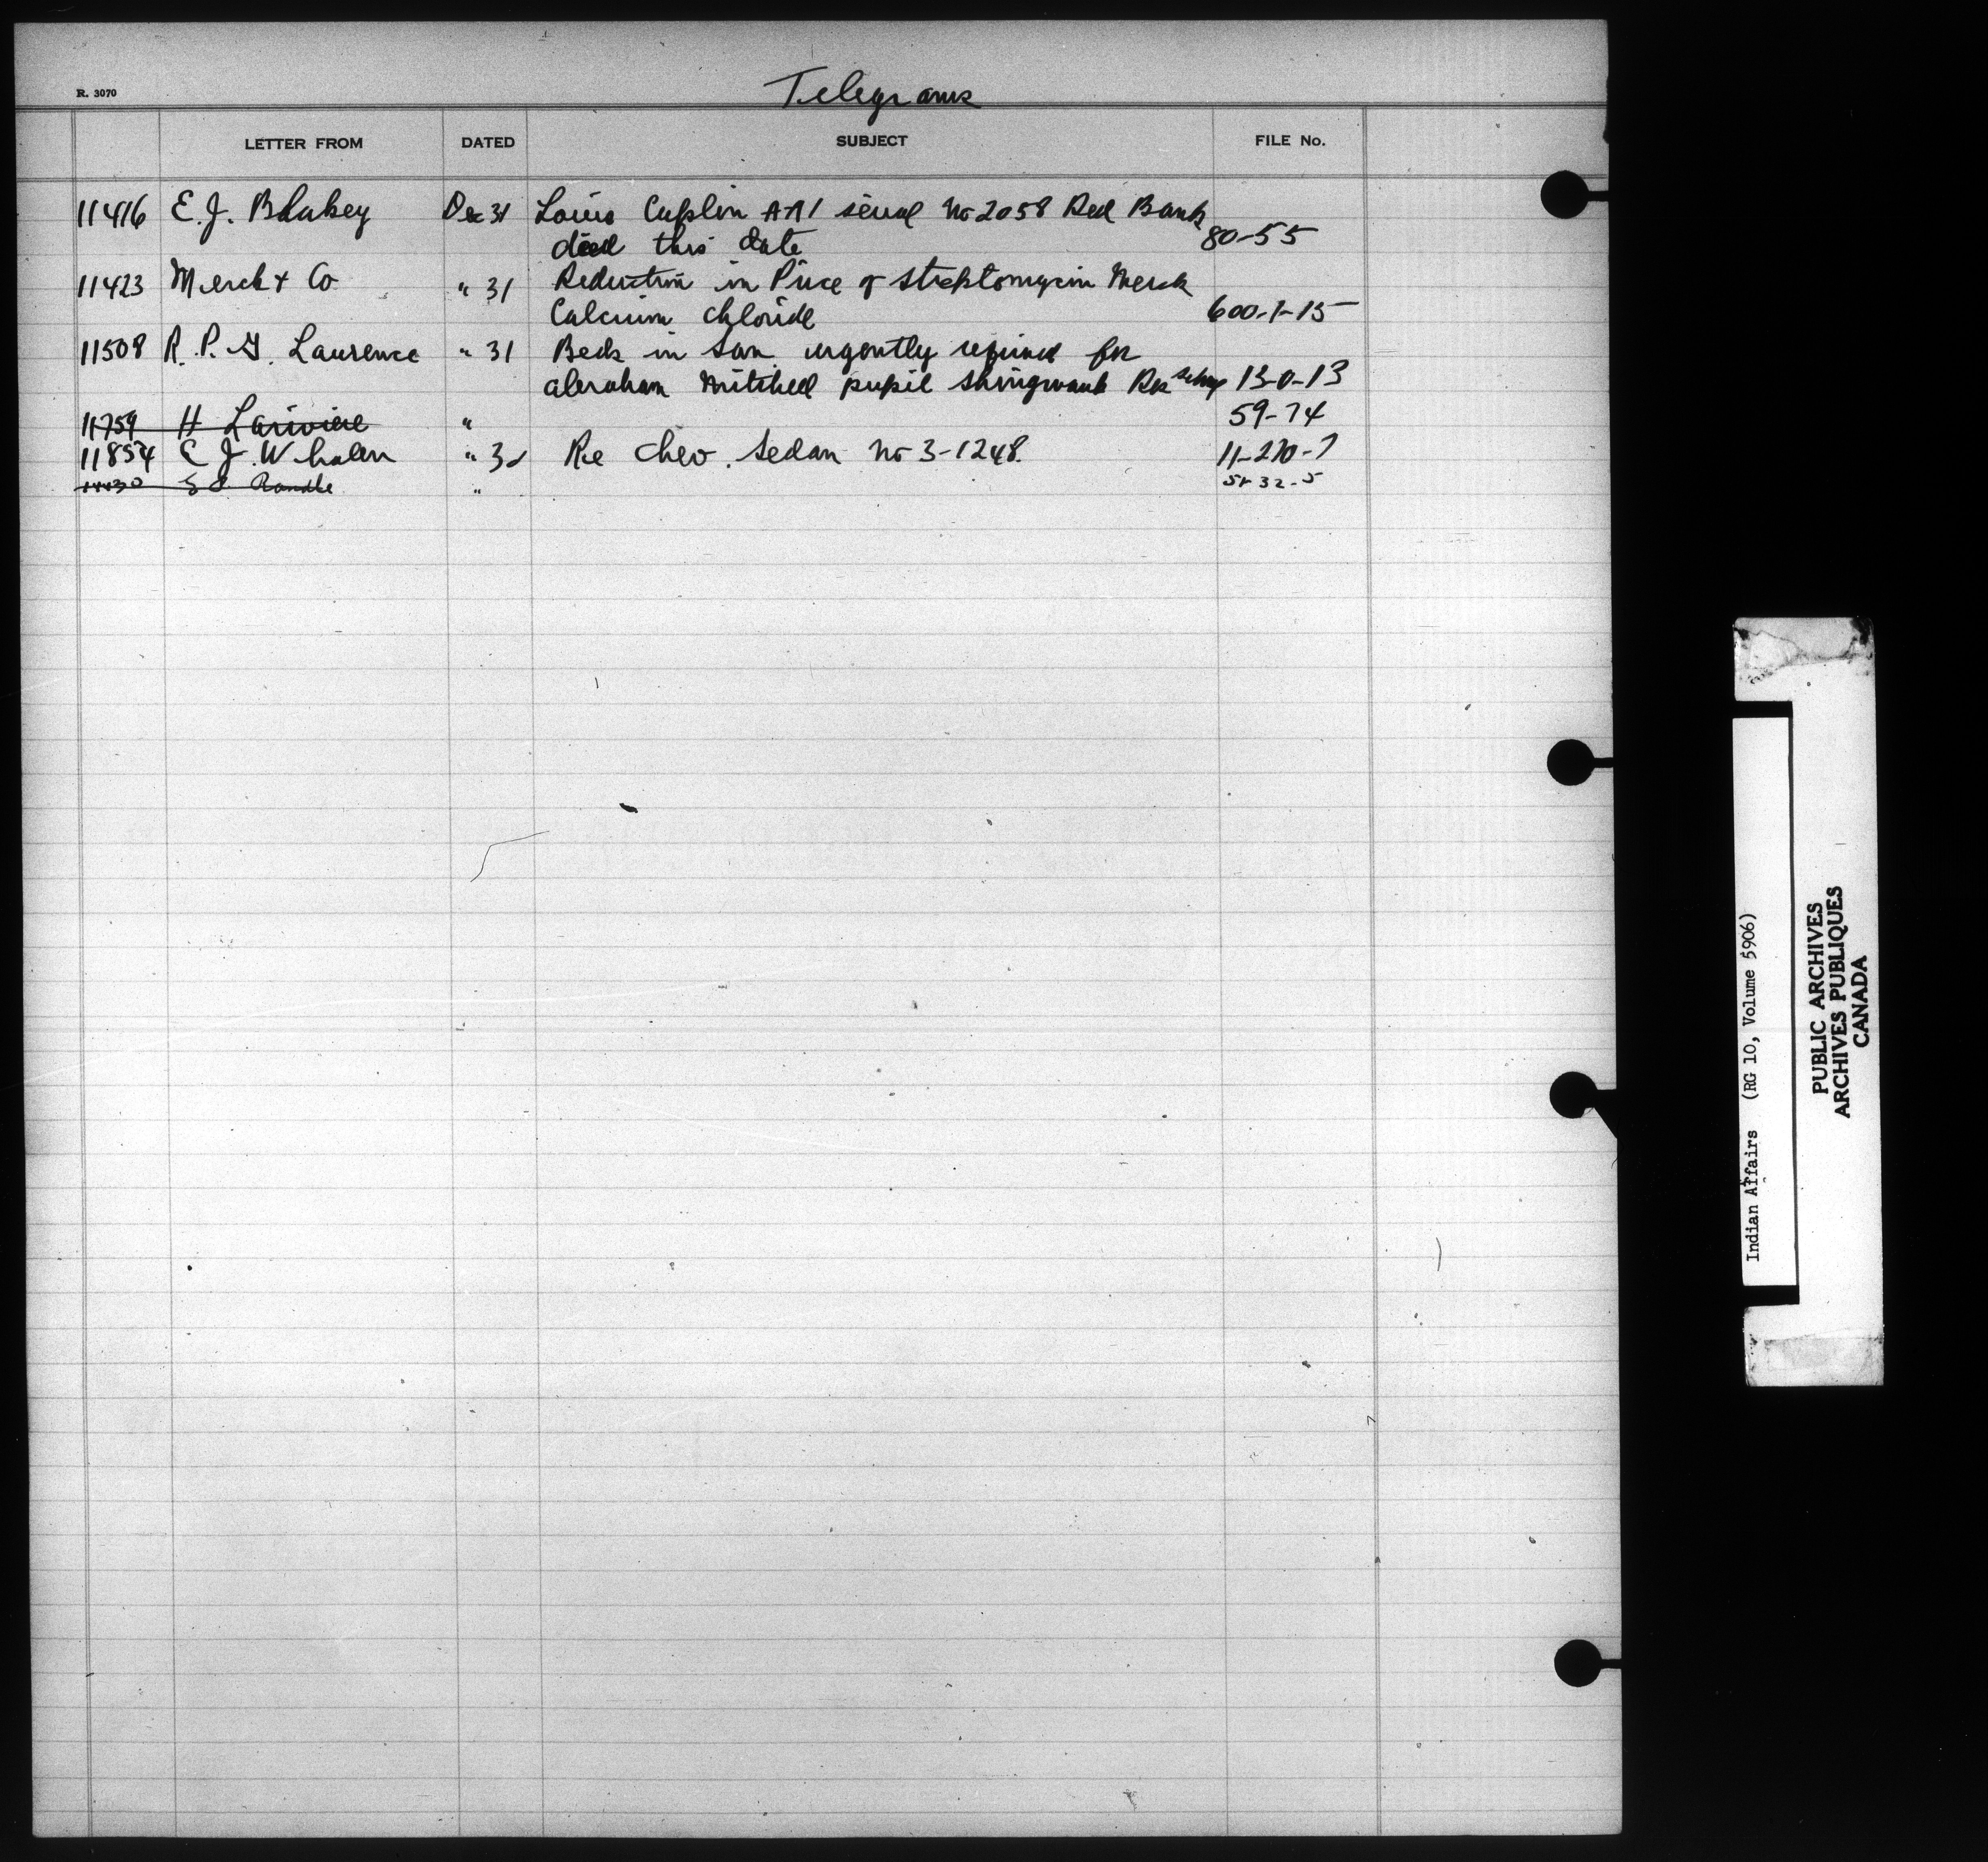 R. 3070
Telegrams
LETTER FROM DATED SUBJECT FILE No.
11416 E. J. Blakey Dec 31 Louis Caplin AA1 serial No 2058 Red Bank
died this date 80-55
11423 Merck & Co " 31 Reduction in Price of Streptomycin Merck
Calcium Chloride 600-1-15
11508 R. P. G. Laurence " 31 Beds in San urgently required for
abraham Mitchell pupil Shingwauk Res School 13-0-13
11759 H Lariviere " 59-74
11854 E J. Whalen " 31 Re Chev. Sedan No 3-1248. 11-270-7
Randle " 32-5
Indian Affairs (RG 10, Volume 5906)
PUBLIC ARCHIVES
ARCHIVES PUBLIQUES
CANADA